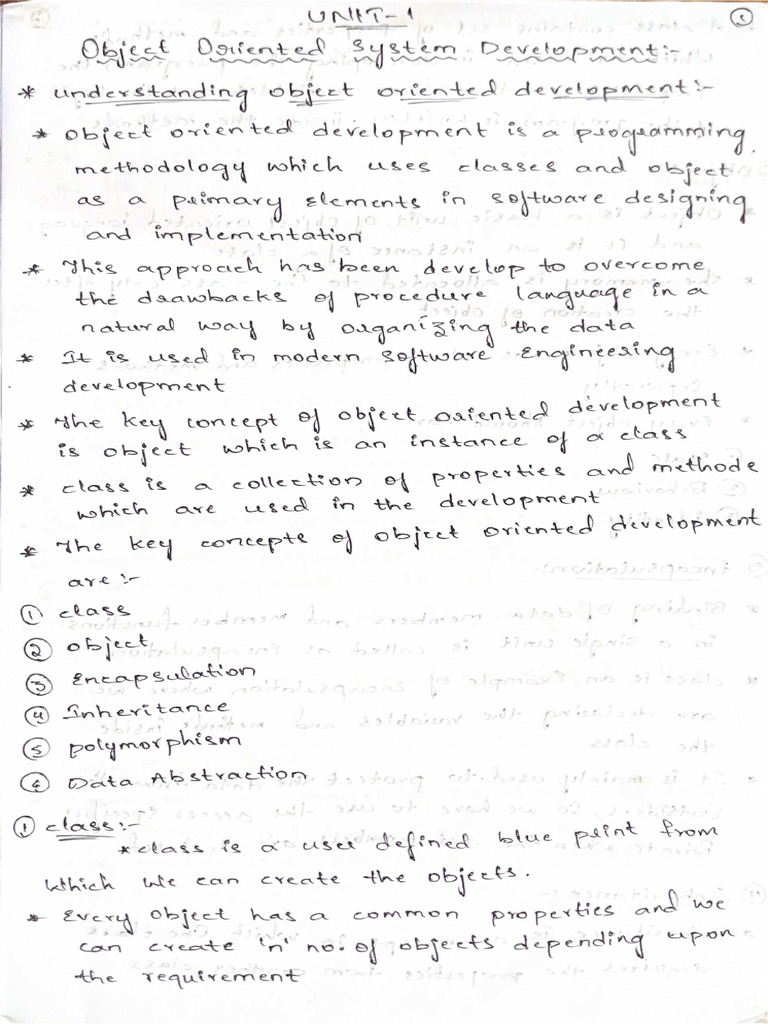 UNIT-1
Object Oriented System Development:-
* understanding object oriented development:-
* object oriented development is a programming
methodology which uses classes and object
as a primary elements in software designing
and implementation
* This approach has been develop to overcome
the drawbacks of procedure language in a
natural way by organizing the data
* It is used in modern software Engineering
development
* The key concept of object oriented development
is object which is an instance of a class
* class is a collection of properties and methods
which are used in the development
* The key concepts of object oriented development
are :-
① class
② object
③ Encapsulation
④ Inheritance
⑤ polymorphism
⑥ Data Abstraction
① class:-
* class is a user defined blue print from
which we can create the objects.
* Every object has a common properties and we
can create 'n' no. of objects depending upon
the requirement